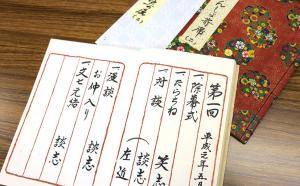 第一回
平成
年五月
一除幕式
一たらちね 笑志
一対談 (談志
左近
一漫談 談志
お仲入り
一文七元結 談志
寄席